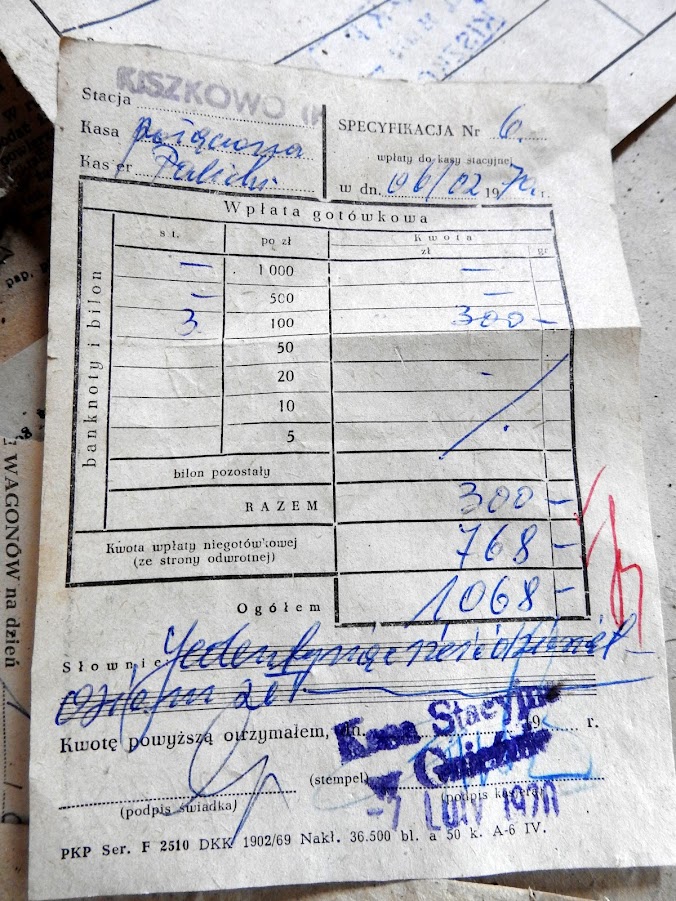 Stacja KISZKOWO
Kasa
Kasjer
SPECYFIKACJA Nr 6.
wpłaty do kasy stacyjnej
w dn. 06/02 1970 r.
Wpłata gotówkowa
banknoty i bilon
szt. po zł Kwota
zł gr
— 1 000 —
— 500 —
3 100 300 —
50
20 -
10
5
bilon pozostały
RAZEM 300 —
Kwota wpłaty niegotówkowej 768 —
(ze strony odwrotnej)
Ogółem 1068 —
Słownie Jeden tysiąc sześćdziesiąt
osiem zł
Kwotę powyższą otrzymałem, dn. 19 r.
Kasa Stacyjna
w Gnieźnie
-7 LUTY 1970
(stempel)
(podpis świadka)
(podpis kasjera)
PKP Ser. F 2510 DKK 1902/69 Nakł. 36.500 bl. a 50 k. A-6 IV.
WAGONÓW na dzień